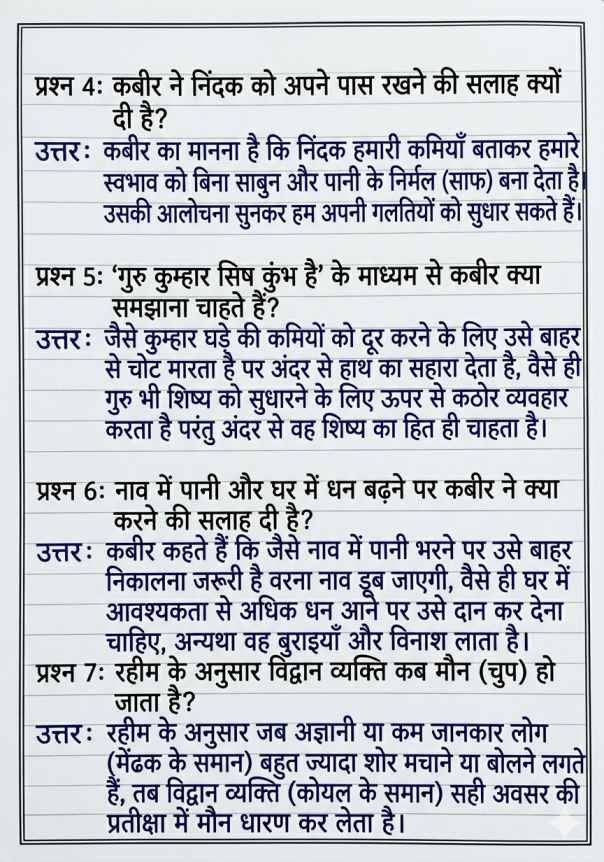 प्रश्न 4: कबीर ने निंदक को अपने पास रखने की सलाह क्यों
दी है?
उत्तर: कबीर का मानना है कि निंदक हमारी कमियाँ बताकर हमारे
स्वभाव को बिना साबुन और पानी के निर्मल (साफ) बना देता है।
उसकी आलोचना सुनकर हम अपनी गलतियों को सुधार सकते हैं।
प्रश्न 5: ‘गुरु कुम्हार सिष कुंभ है’ के माध्यम से कबीर क्या
समझाना चाहते हैं?
उत्तर: जैसे कुम्हार घड़े की कमियों को दूर करने के लिए उसे बाहर
से चोट मारता है पर अंदर से हाथ का सहारा देता है, वैसे ही
गुरु भी शिष्य को सुधारने के लिए ऊपर से कठोर व्यवहार
करता है परंतु अंदर से वह शिष्य का हित ही चाहता है।
प्रश्न 6: नाव में पानी और घर में धन बढ़ने पर कबीर ने क्या
करने की सलाह दी है?
उत्तर: कबीर कहते हैं कि जैसे नाव में पानी भरने पर उसे बाहर
निकालना जरूरी है वरना नाव डूब जाएगी, वैसे ही घर में
आवश्यकता से अधिक धन आने पर उसे दान कर देना
चाहिए, अन्यथा वह बुराइयाँ और विनाश लाता है।
प्रश्न 7: रहीम के अनुसार विद्वान व्यक्ति कब मौन (चुप) हो
जाता है?
उत्तर: रहीम के अनुसार जब अज्ञानी या कम जानकार लोग
(मेंढक के समान) बहुत ज्यादा शोर मचाने या बोलने लगते
हैं, तब विद्वान व्यक्ति (कोयल के समान) सही अवसर की
प्रतीक्षा में मौन धारण कर लेता है।